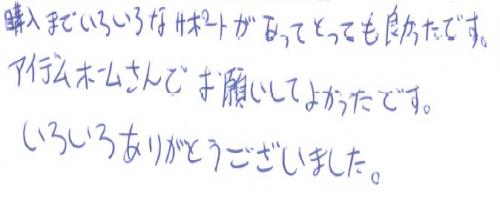 購入までいろいろなサポートがあってとっても良かったです。
アイデムホームさんでお願いしてよかったです。
いろいろありがとうございました。